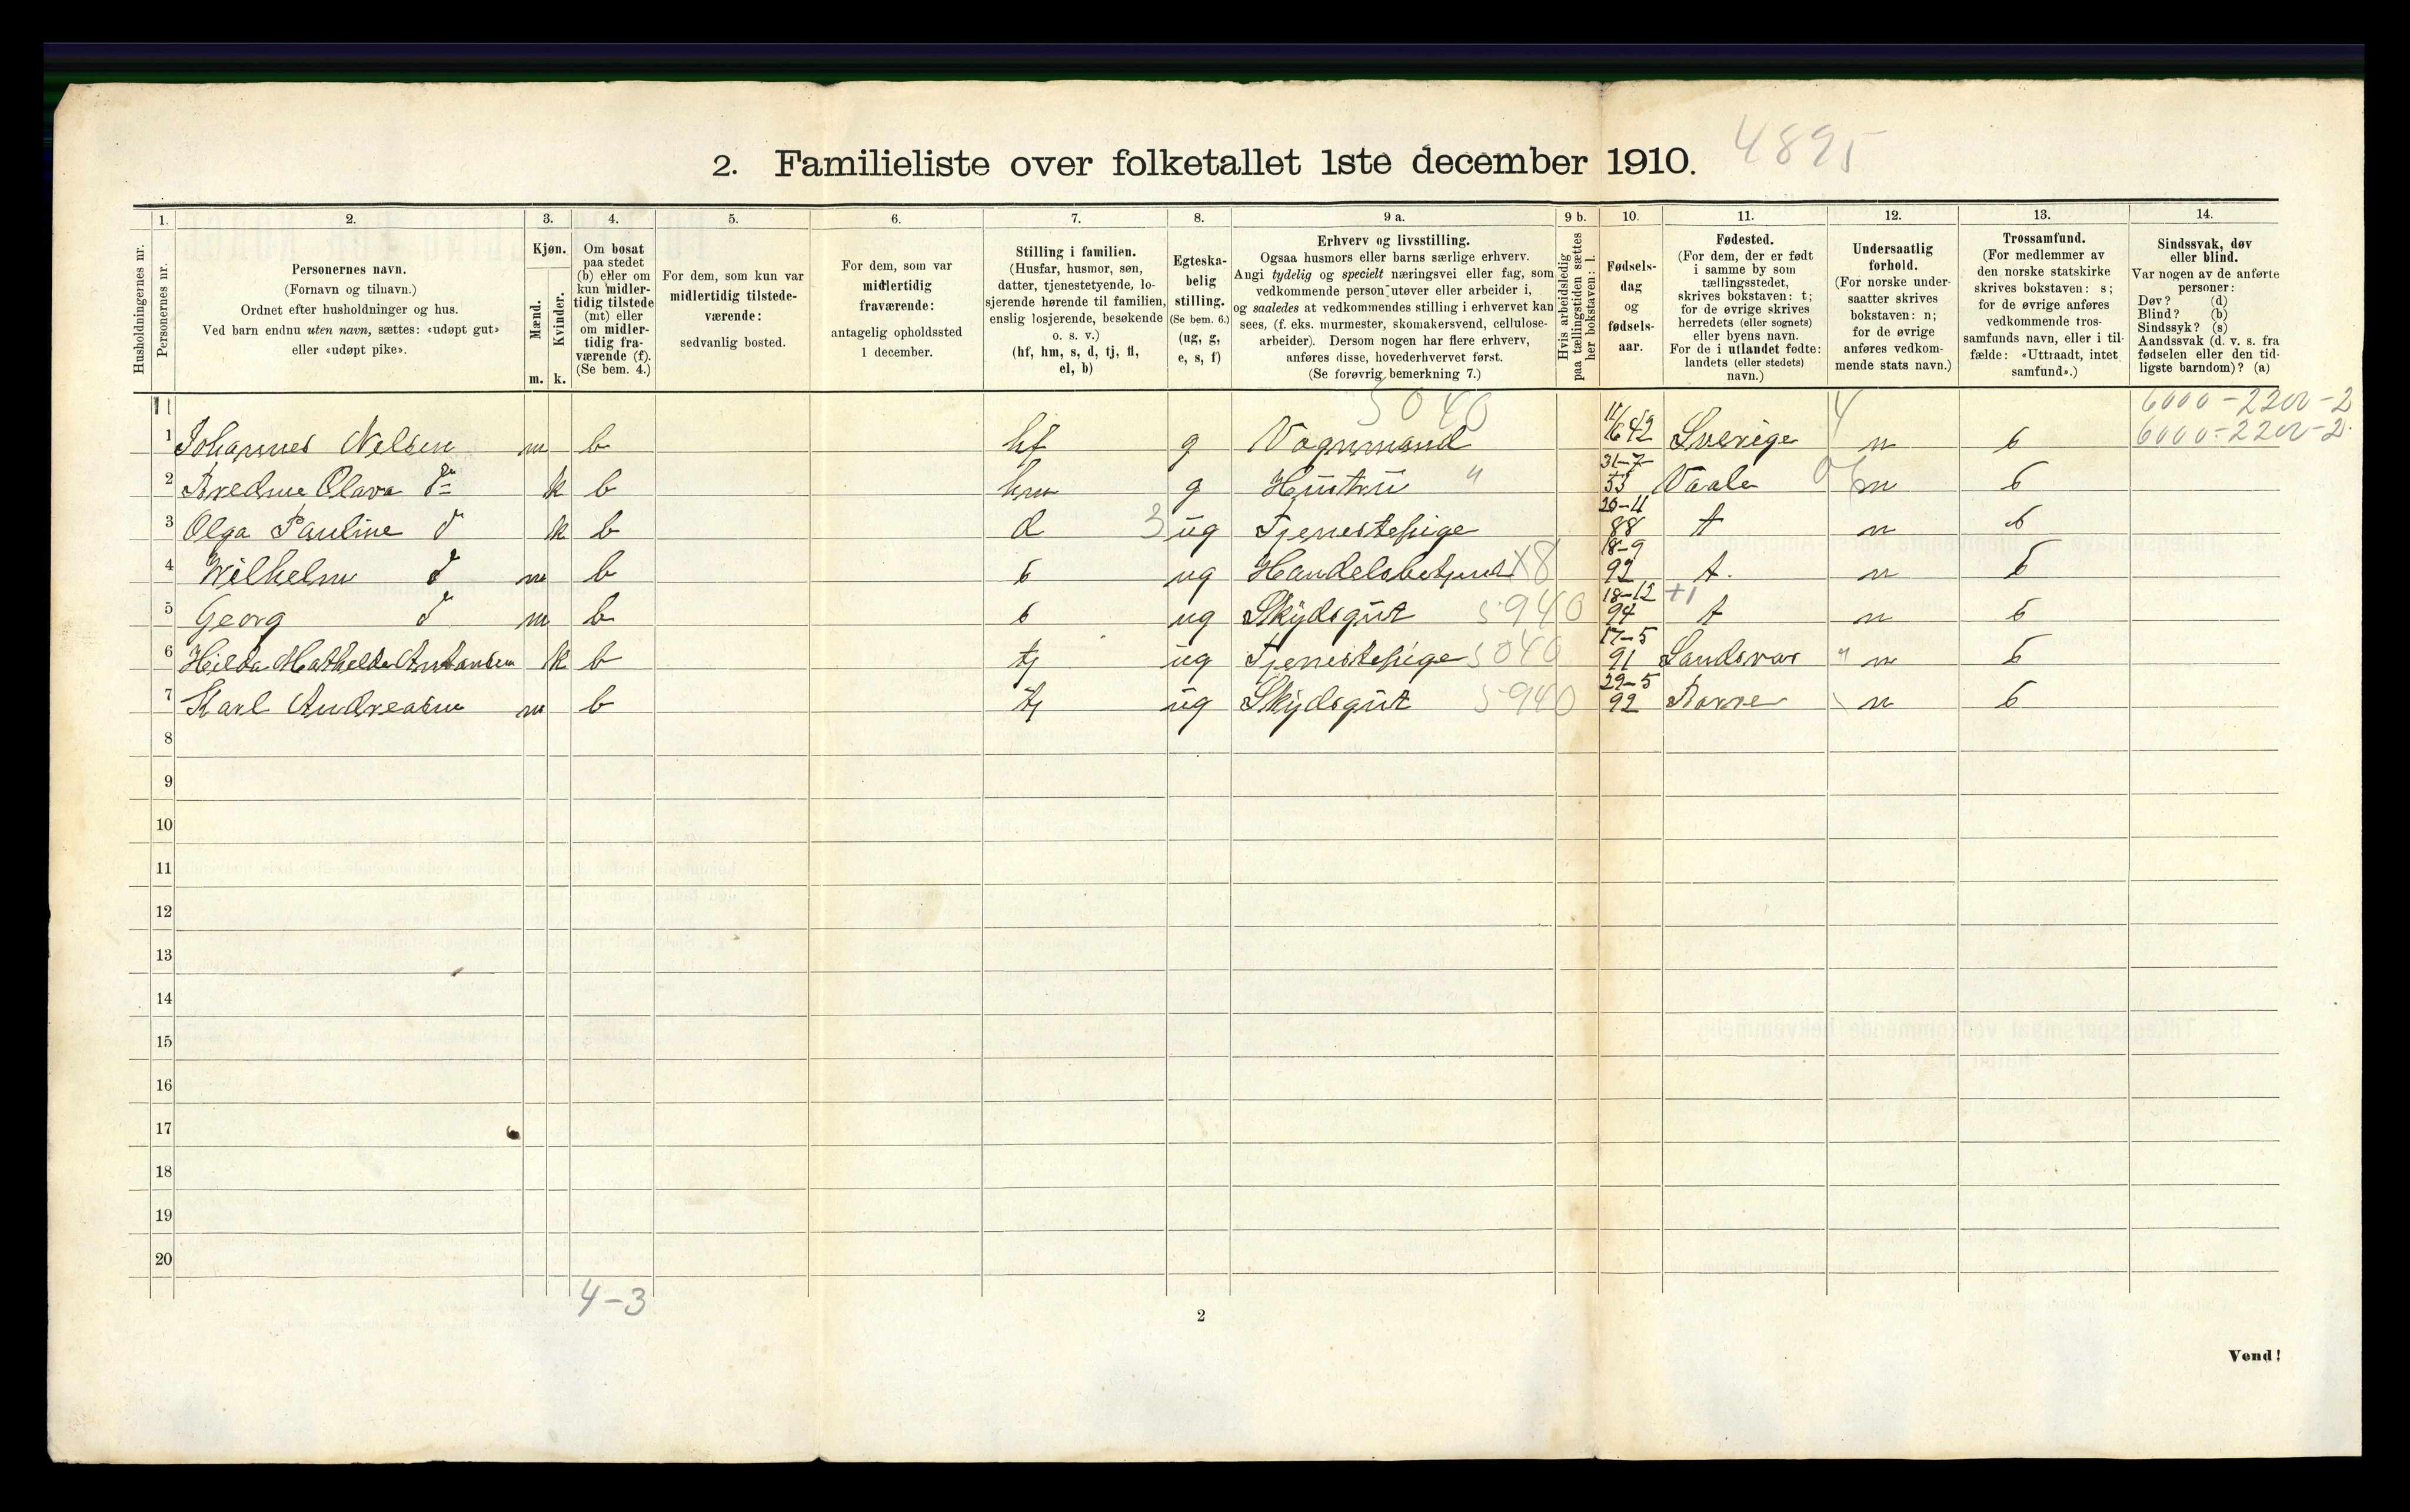 2. Familieliste over folketallet 1ste december 1910. 4895
Husholdningernes nr.
1. Personernes nr.
2. Personernes navn.
(Fornavn og tilnavn.)
Ordnet efter husholdninger og hus.
Ved barn endnu uten navn, sættes: «udøpt gut»
eller «udøpt pike».
3. Kjøn.
Mænd. Kvinder.
m. k.
4. Om bosat
paa stedet
(b) eller om
kun midler-
tidig tilstede
(mt) eller
om midler-
tidig fra-
værende (f).
(Se bem. 4.)
5. For dem, som kun var
midlertidig tilstede-
værende:
sedvanlig bosted.
6. For dem, som var
midlertidig
fraværende:
antagelig opholdssted
1 december.
7. Stilling i familien.
(Husfar, husmor, søn,
datter, tjenestetyende, lo-
sjerende hørende til familien,
enslig losjerende, besøkende
o. s. v.)
(hf, hm, s, d, tj, fl,
el, b)
8. Egteska-
belig
stilling.
(Se bem. 6.)
(ug, g,
e, s, f)
9 a. Erhverv og livsstilling.
Ogsaa husmors eller barns særlige erhverv.
Angi tydelig og specielt næringsvei eller fag, som
vedkommende person utøver eller arbeider i,
og saaledes at vedkommendes stilling i erhvervet kan
sees, (f. eks. murmester, skomakersvend, cellulose-
arbeider). Dersom nogen har flere erhverv,
anføres disse, hovederhvervet først.
(Se forøvrig bemerkning 7.)
9 b. Hvis arbeidsledig
paa tællingstiden sættes
her bokstaven: l.
10. Fødsels-
dag
og
fødsels-
aar.
11. Fødested.
(For dem, der er født
i samme by som
tællingsstedet,
skrives bokstaven: t;
for de øvrige skrives
herredets (eller sognets)
eller byens navn.
For de i utlandet fødte:
landets (eller stedets)
navn.)
12. Undersaatlig
forhold.
(For norske under-
saatter skrives
bokstaven: n;
for de øvrige
anføres vedkom-
mende stats navn.)
13. Trossamfund.
(For medlemmer av
den norske statskirke
skrives bokstaven: s;
for de øvrige anføres
vedkommende tros-
samfunds navn, eller i til-
fælde: «Uttraadt, intet
samfund».)
14. Sindssvak, døv
eller blind.
Var nogen av de anførte
personer:
Døv? (d)
Blind? (b)
Sindssyk? (s)
Aandssvak (d. v. s. fra
fødselen eller den tid-
ligste barndom)? (a)
5040 6000-2200-2
1 Johannes Nelsen m b hf g Vognmand 42 Sverige n s 6000-2200-2
2 Olava k b hm g Hustru " 31-7-53 Vaale n s
3 Olga Pauline d k b d 3 ug Tjenestepige 20-11 88 t n s
4 Wilhelm d m b s ug Handelsbetjent X8 18-9 92 t. n s
5 Georg d m b s ug Skydsgut 5940 18-12 94 +1 t n s
6 Hilda Mathilde Antonsen k b tj ug Tjenestepige 5040 17-5 91 Sandsvær n s
7 Karl Andreasen m b tj ug Skydsgut 5940 29-5 92 Borre n s
8
9
10
11
12
13
14
15
16
17
18
19
20
4-3
2
Vend!